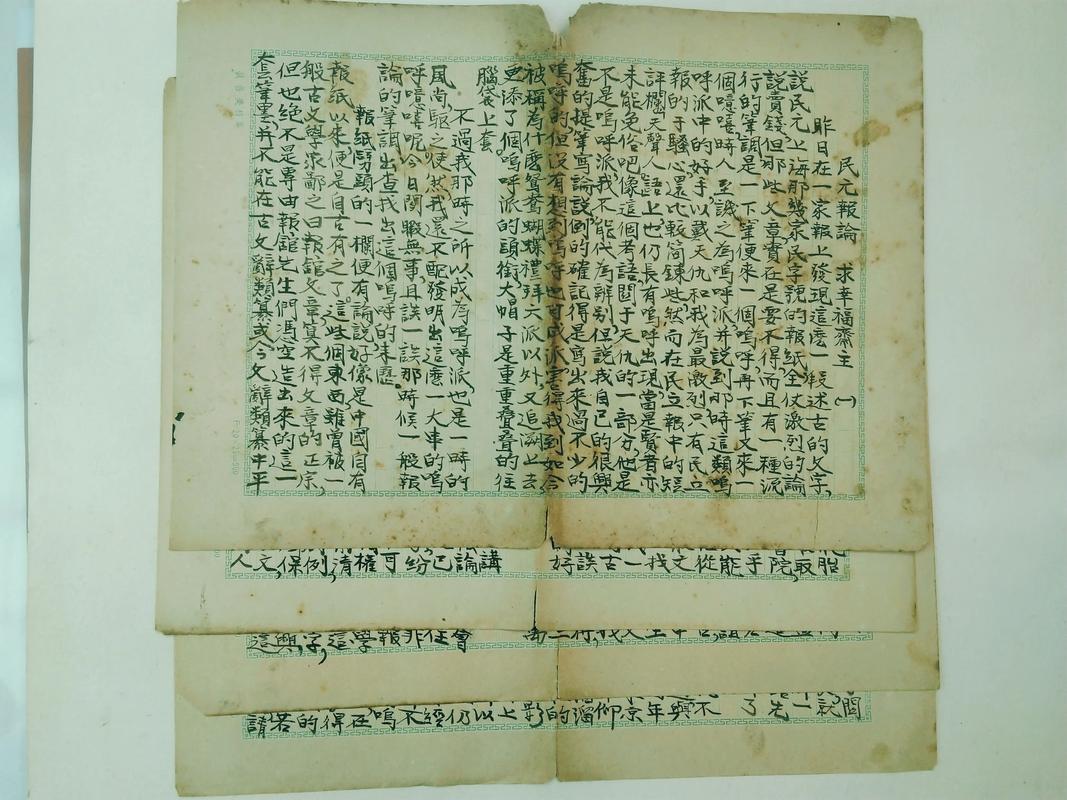 民元報論　求幸福齋主　(一)
昨日在一家報上發現這麽一段述古的文字，
說民元上海那幾家民字號的報紙，全仗激烈的論
說賣錢，但那些文章實在是要不得，而且有一種流
行的筆調是一下筆便來一個嗚呼，再下筆又來一
個噫嘻，時人至譏之為嗚呼派，并說到那時這類嗚
呼派中的好手，以戴天仇和我為最激烈，只有民立
報的于騷心還比較簡鍊些，然而在民立報中的短
評欄天聲人語上也仍長有嗚呼出現，當是賢者亦
未能免俗吧，像這個考語關于天仇的一部分，他是
不是嗚呼派，我不能代為辨别，但說我自己的很興
奮的提筆寫論說，倒的確記得是寫出來過不少的
嗚呼的，但沒有想到嗚呼也可成派，害得我到如今
被稱為什麽鴛鴦蝴蝶禮拜六派以外，又追溯上去
更添了個嗚呼派的頭銜，大帽子是重重叠叠的往
腦袋上套
不過我那時之所以成為嗚呼派，也是一時的
風尚，驅之使然，我還不配發明出這麽一大串的嗚
呼噫嘻呢，今日閒暇無事，且談一談那時候一般報
論的筆調，出查我出這個嗚呼的來歷。
報紙劈頭的一欄便有論說，好像是中國自有
報紙以來，便是自古有之了，這些個東西雖曾被一
般古文學家鄙之曰報館文章，算不得文章的正宗，
但也绝不是專由報館先生們憑空造出來的這一
套筆墨，并不能在古文辭類纂或今文辭類纂中平
胎
取
院，
乎
能
從
文
找
一
古
談
好
講
論
已
紛
可
權
清
例，
保
文，
人
會
往
非
報
學
這
字，
興，
這
關
說
一
先
了
不
興
年
京
仰
瀛
的
影
上
以
仍
經
不
嗚
在
得
的
若
請